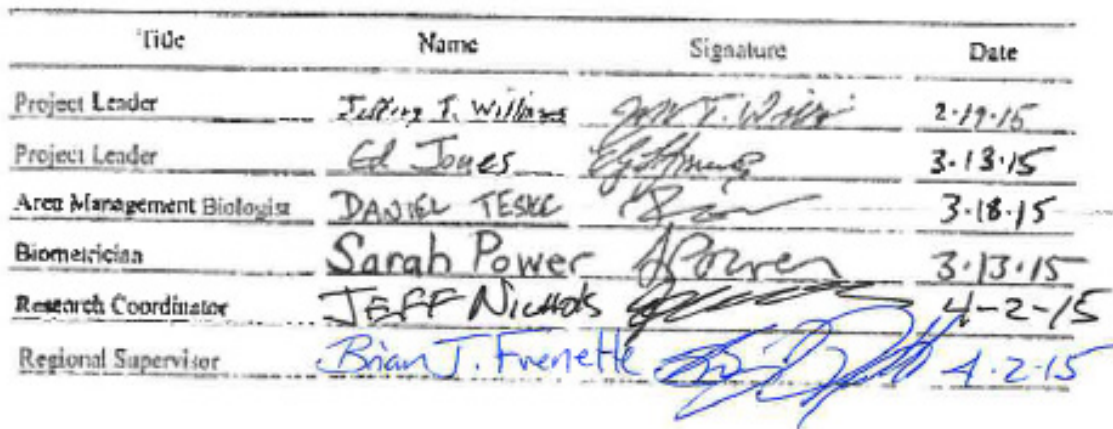 Title Name Signature Date
Project Leader Jeffrey T. Williams 2·19·15
Project Leader Ed Jones 3·13·15
Area Management Biologist DANIEL TESKE 3·18·15
Biometrician Sarah Power SPower 3·13·15
Research Coordinator JEFF Nichols 4-2-15
Regional Supervisor Brian J. Frenette 4·2·15